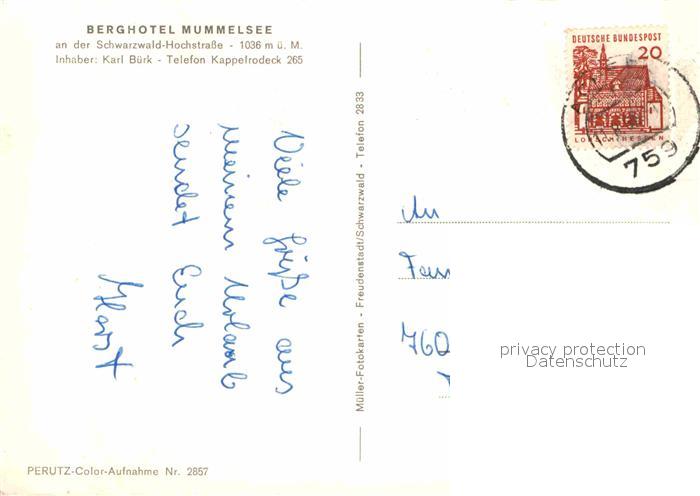 BERGHOTEL MUMMELSEE
an der Schwarzwald-Hochstraße - 1036 m ü. M.
Inhaber: Karl Bürk - Telefon Kappelrodeck 265
Viele Grüße aus
meinem Urlaub
sendet Euch
Horst
PERUTZ-Color-Aufnahme Nr. 2857
Müller-Fotokarten - Freudenstadt/Schwarzwald - Telefon 2833
DEUTSCHE BUNDESPOST
20
759
An
Fam
760
privacy protection
Datenschutz